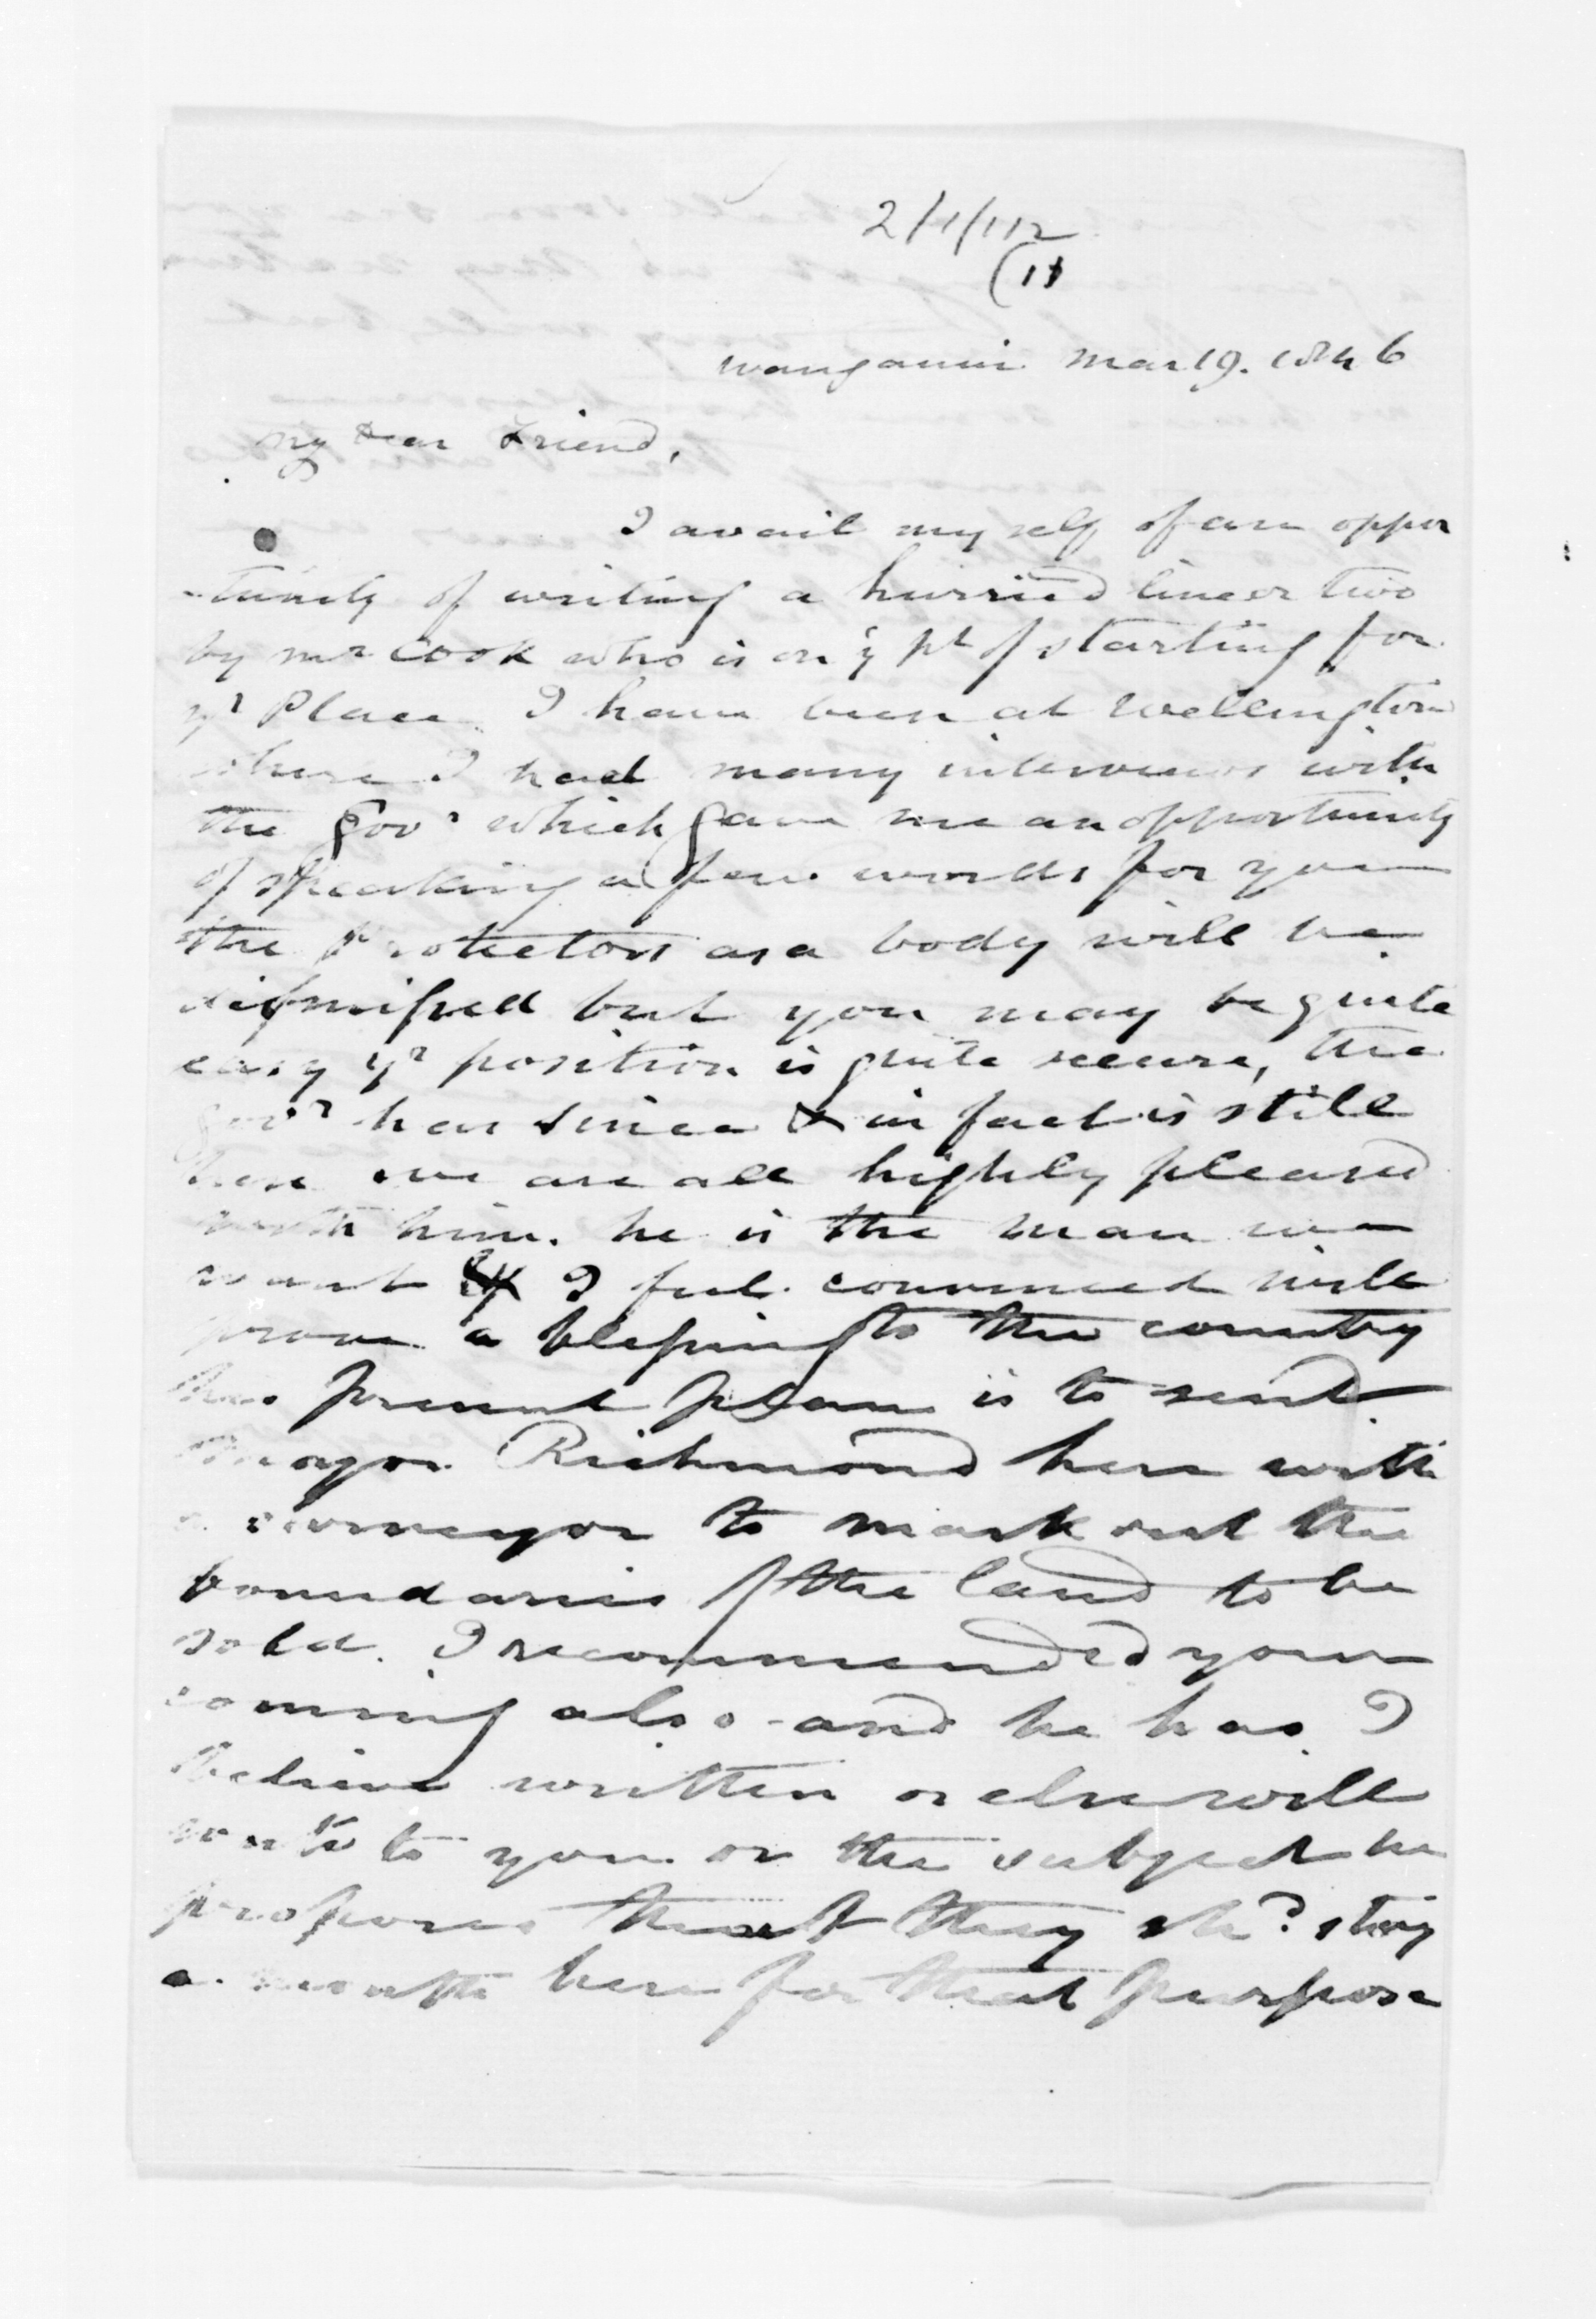 2/1/112
(11
Wanganui Mar 19. 1846
My Dear Friend,
I avail myself of an oppor
-tunity of writing a hurried line or two
by Mr Cook who is on ye pt of starting for
yr Place. I have been at Wellington
where I had many interviews with
the Govr which gave me an opportunity
of speaking a few words for you
the Protectors as a body will be
dismissed but you may be quite
easy yr position is quite secure, the
Govr has since & in fact is still
here we are all highly pleased
with him. he is the man we
want & I feel convinced will
prove a blessing to the country
his present plan is to send
Major Richmond here with
a surveyor to mark out the
boundaries of the land to be
sold. I recommended your
coming also and he has I
believe written or else will
write to you on the subject he
proposes that they shd stay
a month here for that purpose